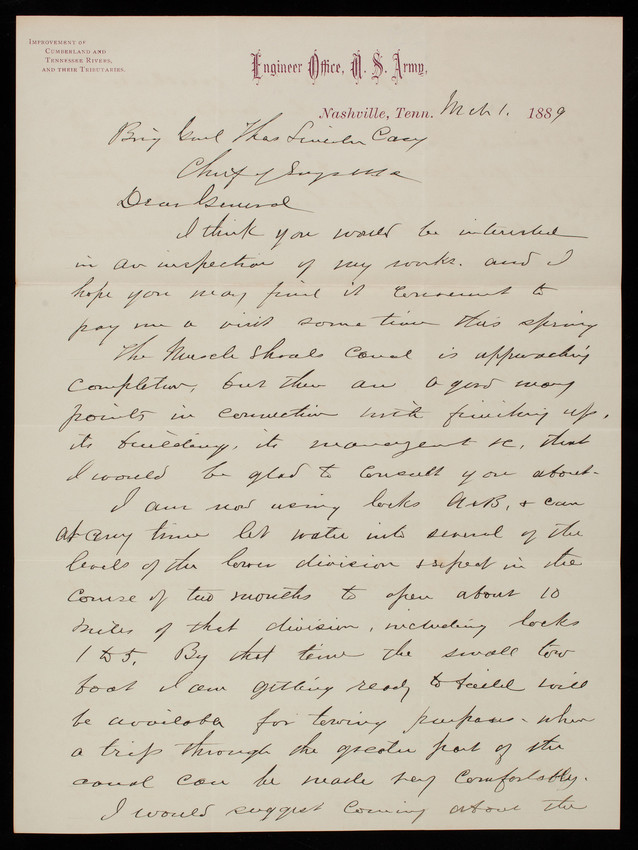 IMPROVEMENT OF
CUMBERLAND AND
TENNESSEE RIVERS,
AND THEIR TRIBUTARIES.
Engineer Office, U. S. Army,
Nashville, Tenn. Mch 1. 1889
Brig Genl Thos Lincoln Casey
Chief of Engrs USA
Dear General
I think you would be interested
in an inspection of my works. and I
hope you may find it convenient to
pay me a visit some time this spring
The Muscle Shoals Canal is approaching
completion, but there are a good many
points in connection with finishing up,
its buildings, its management &c, that
I would be glad to consult you about.
I am now using locks A & B, & can
at any time let water into several of the
levels of the lower division & expect in the
course of two months to open about 10
miles of that division, including locks
1 to 5. By that time the small tow
boat I am getting ready to build will
be available for towing purposes. when
a trip through the greater part of the
canal can be made very comfortably.
I would suggest coming about the